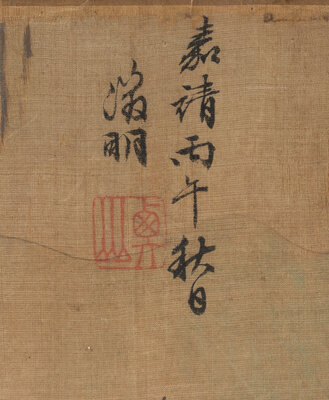 嘉靖丙午秋日
徵明